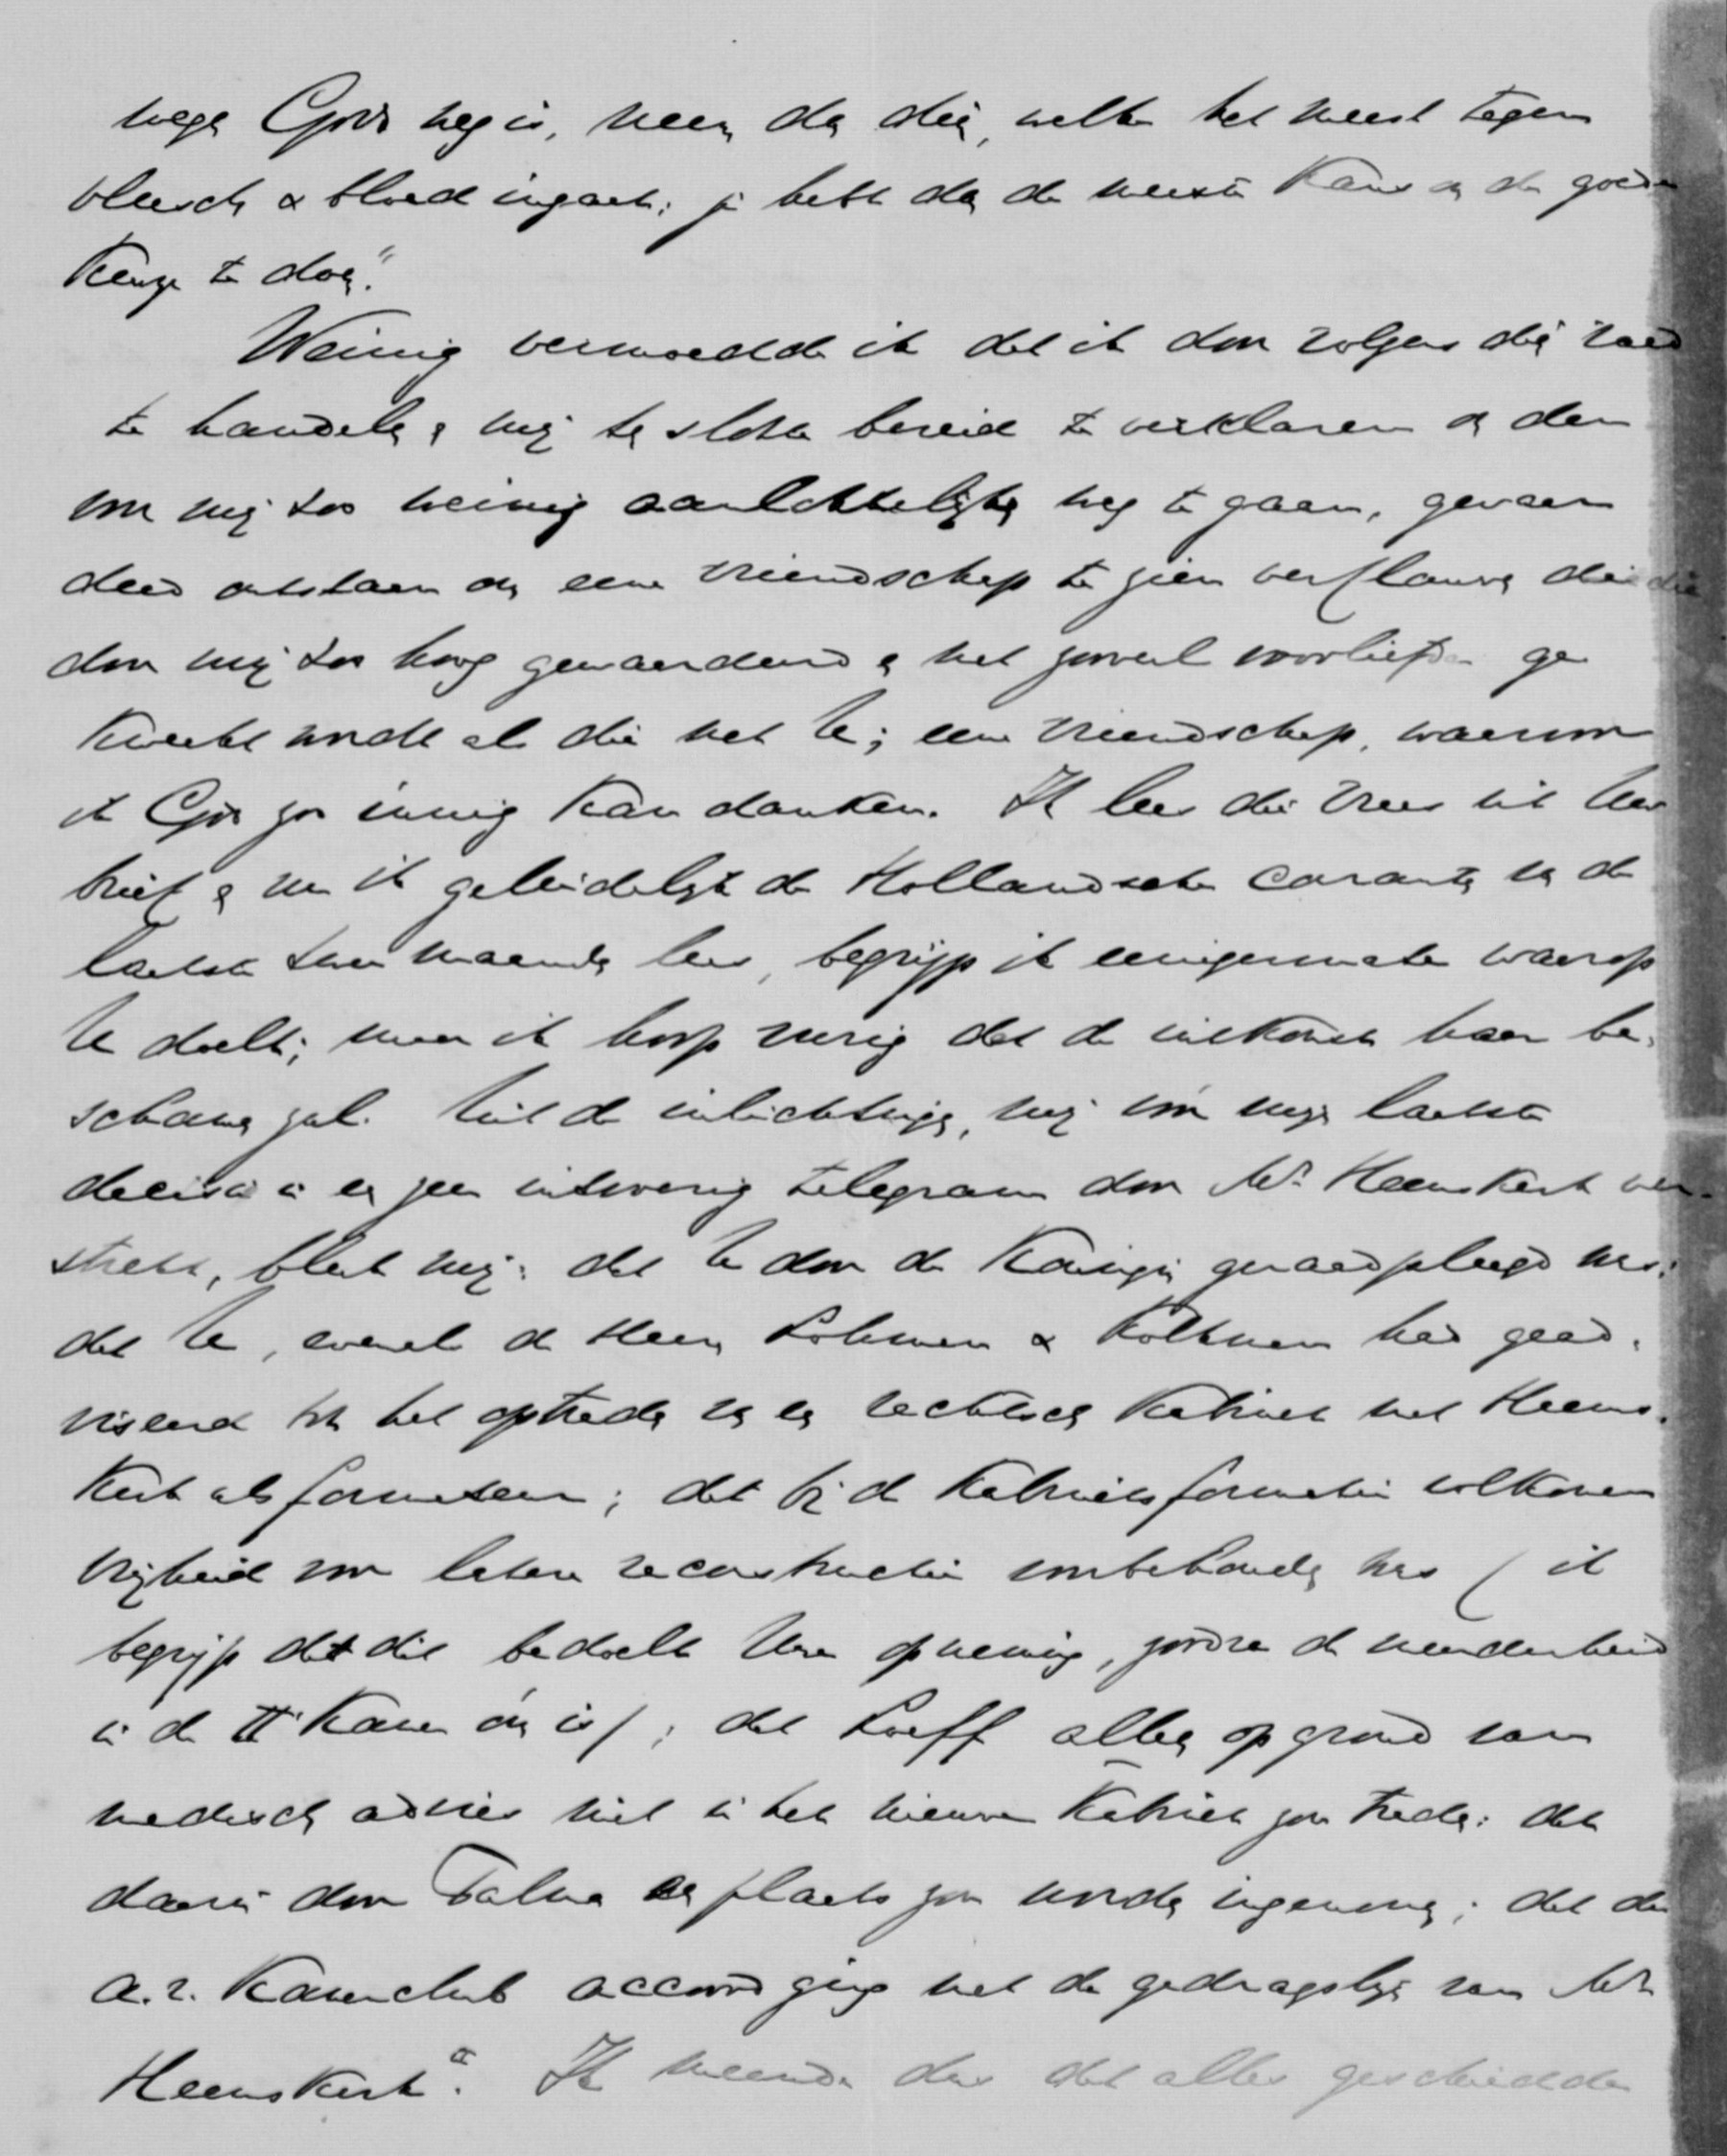 wege Gods weg is, neem dan die, welke het meest tegen
vleesch & bloed ingaat; je hebt dan de meeste kans om de goede
keuze te doen."
Weinig vermoedde ik dat ik door volgens die raad
te handelen en mij ten slotte bereid te verklaren om den
voor mij zoo weinig aanlokkelijken weg te gaan, gevaar
deed ontstaan om eene vriendschap te zien verflauwen die
door mij zoo hoog gewaardeerd en met zooveel voorliefde ge
kweekt wordt als die met U; eene vriendschap, waarvoor
ik God zoo innig kan danken. Ik lees die vrees uit Uw
brief en nu ik geleidelijk de Hollandsche couranten van de
laatste twee maanden lees, begrijp ik eenigermate waarop
U doelt; maar ik hoop vurig dat de uitkomst haar be-
schamen zal. Uit de inlichtingen, mij vóór mijn laatste
decisie in een zeer uitvoerig telegram door Mr Heemskerk ver-
strekt, bleek mij: dat U door de Koningin geraadpleegd was;
dat U, evenals de Heeren Lohman & Kolkman had gead-
viseerd tot het optreden van een rechtsch Kabinet met Heems-
kerk als formateur; dat bij de Kabinetsformatie volkomen
vrijheid voor latere reconstructie voorbehouden was (ik
begrijp dat dit bedoelt Uwe opneming, zoodra de meerderheid
in de II Kamer om is); dat Loeff alleen op grond van
medisch advies niet in het nieuwe Kabinet zou treden; dat
daarin door Talma een plaats zou worden ingenomen; dat de
a.r. Kamerclub accoord ging met de gedragslijn van Mr
Heemskerk". Ik meende dus dat alles geschiedde